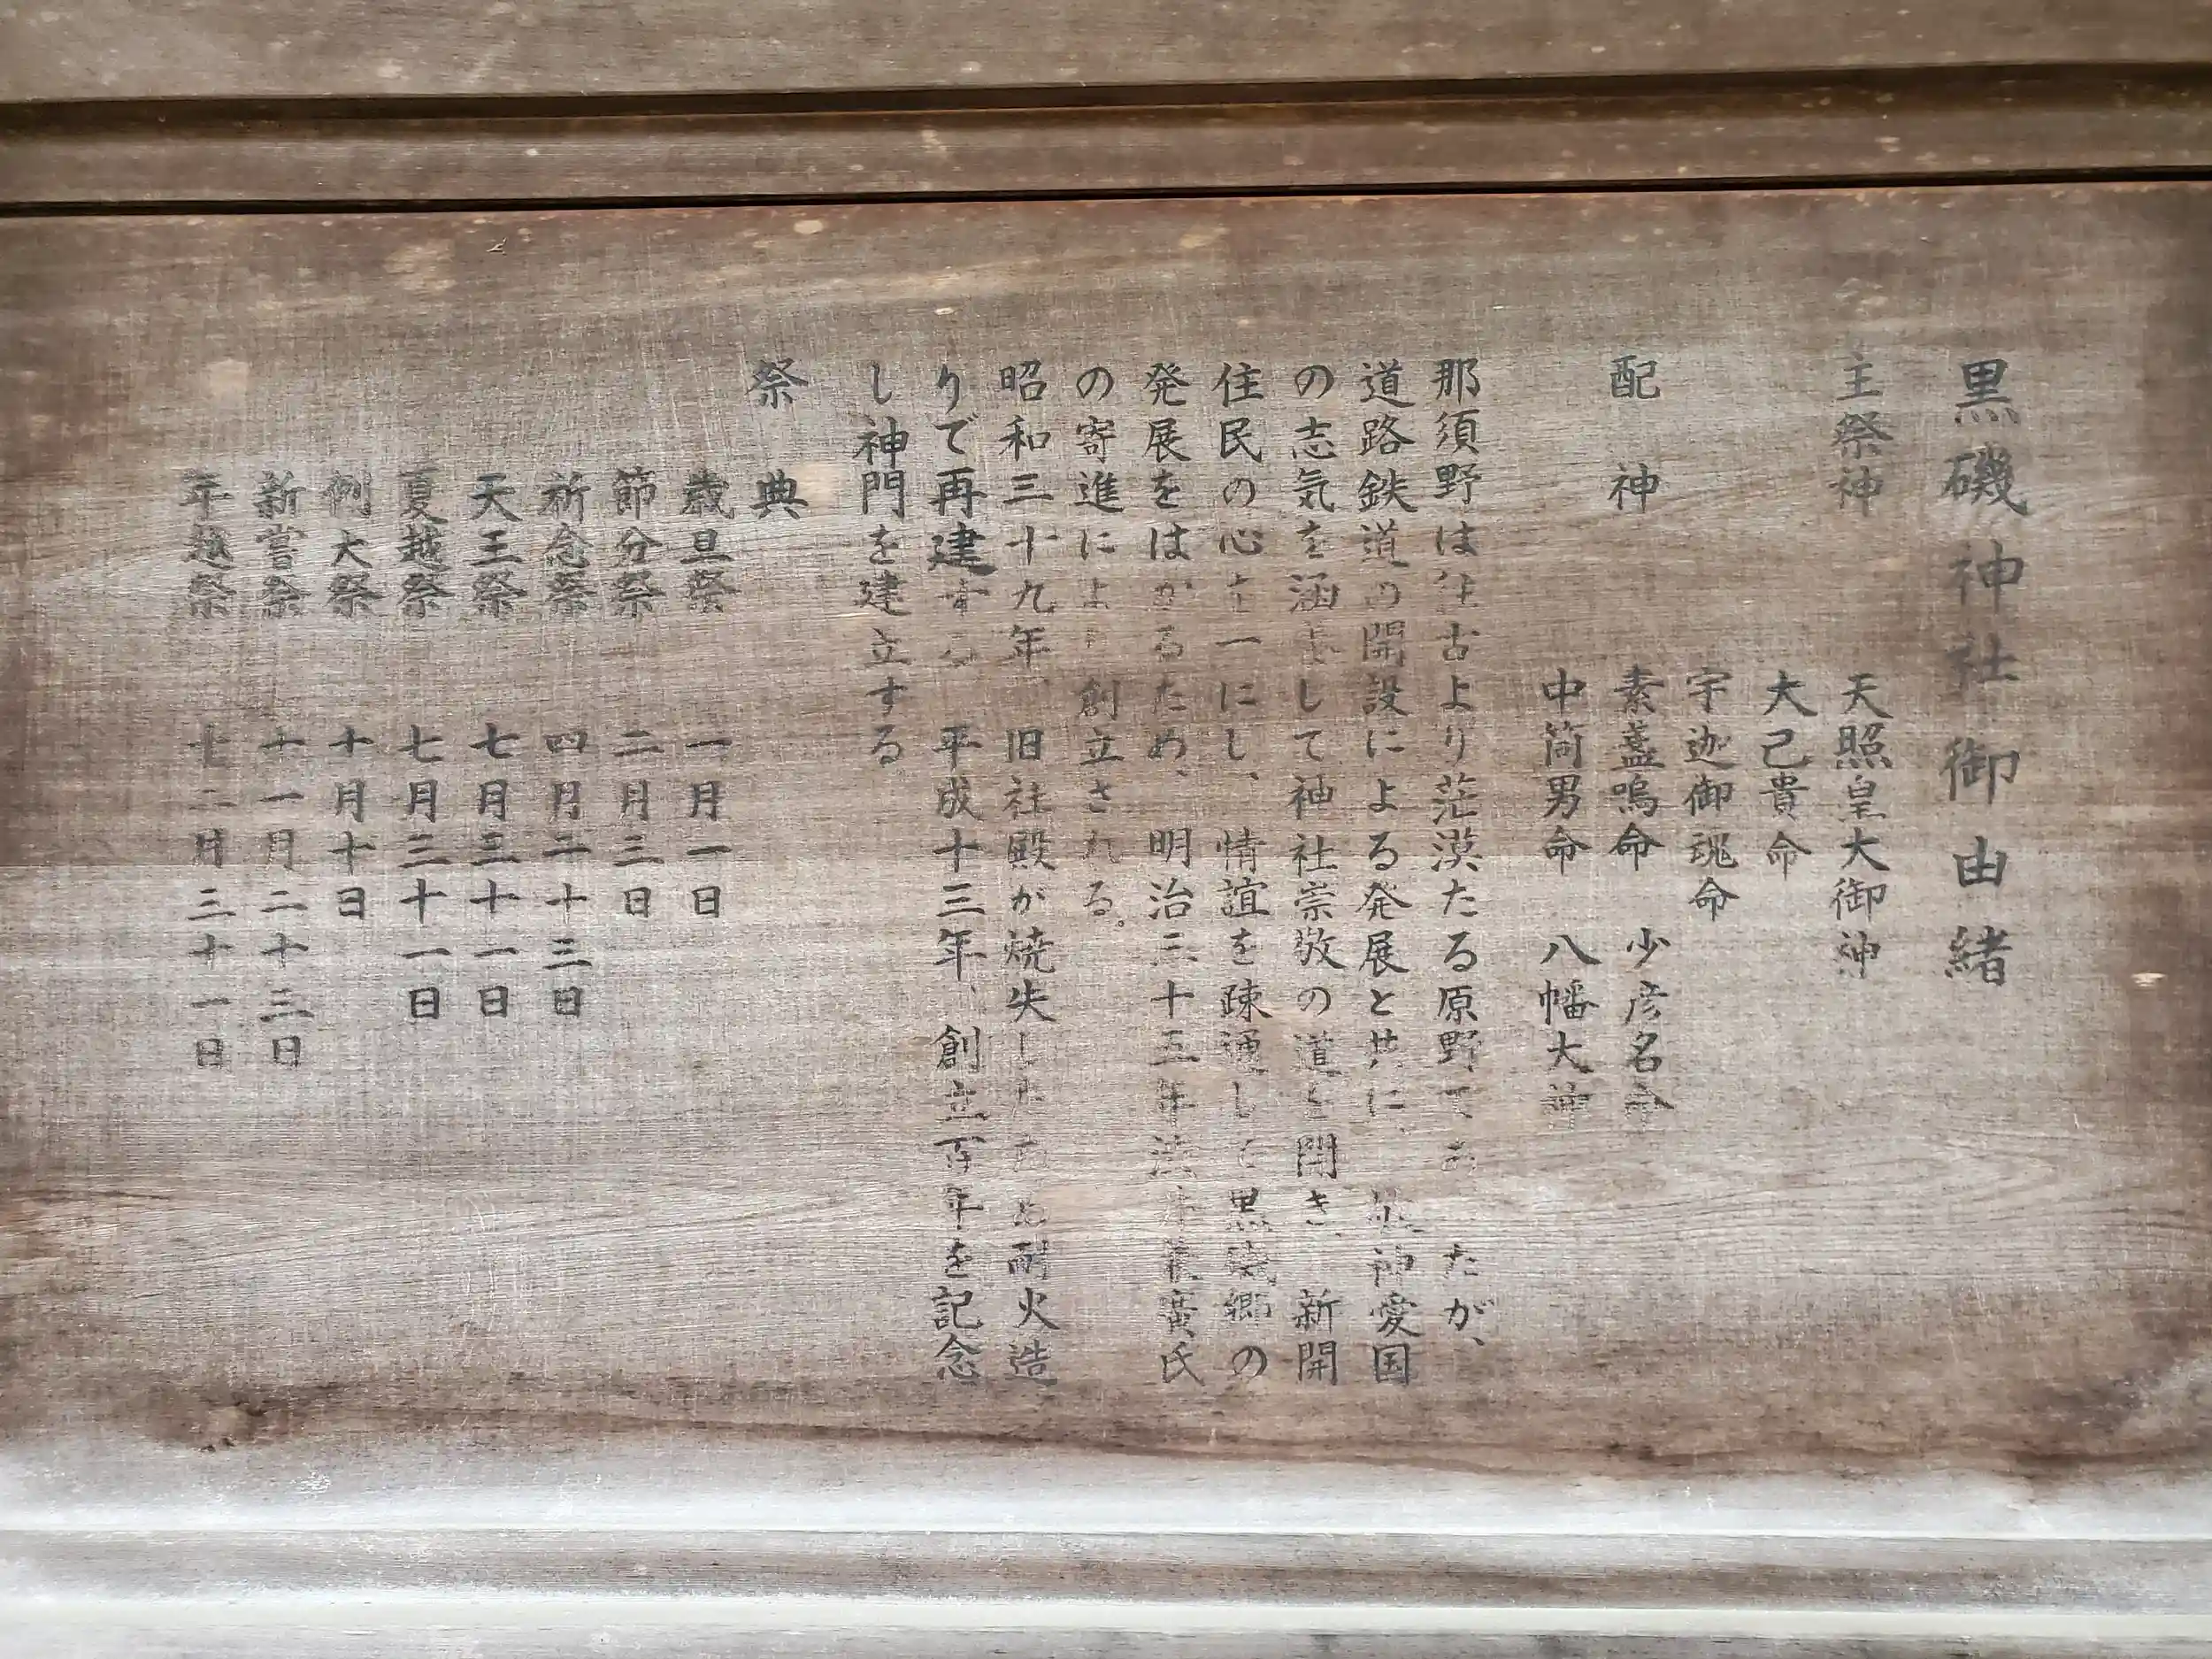 黒磯神社御由緒
主祭神 天照皇大御神
大己貴命
宇迦御魂命
配神 素盞嗚命 少彦名命
中筒男命 八幡大神
那須野は往古より茫漠たる原野であったが、
道路鉄道の開設による発展と共に、敬神愛国
の志気を涵養して神社崇敬の道を開き、新開
住民の心を一にし、情誼を疎通して黒磯郷の
発展をはかるため、明治三十五年 廣氏
の寄進により創立される。
昭和三十九年、旧社殿が焼失したため耐火造
りで再建する 平成十三年、創立百年を記念
し神門を建立する
祭典
歳旦祭 一月一日
節分祭 二月三日
祈念祭 四月二十三日
天王祭 七月三十一日
夏越祭 七月三十一日
例大祭 十月十日
新嘗祭 十一月二十三日
年越祭 十二月三十一日